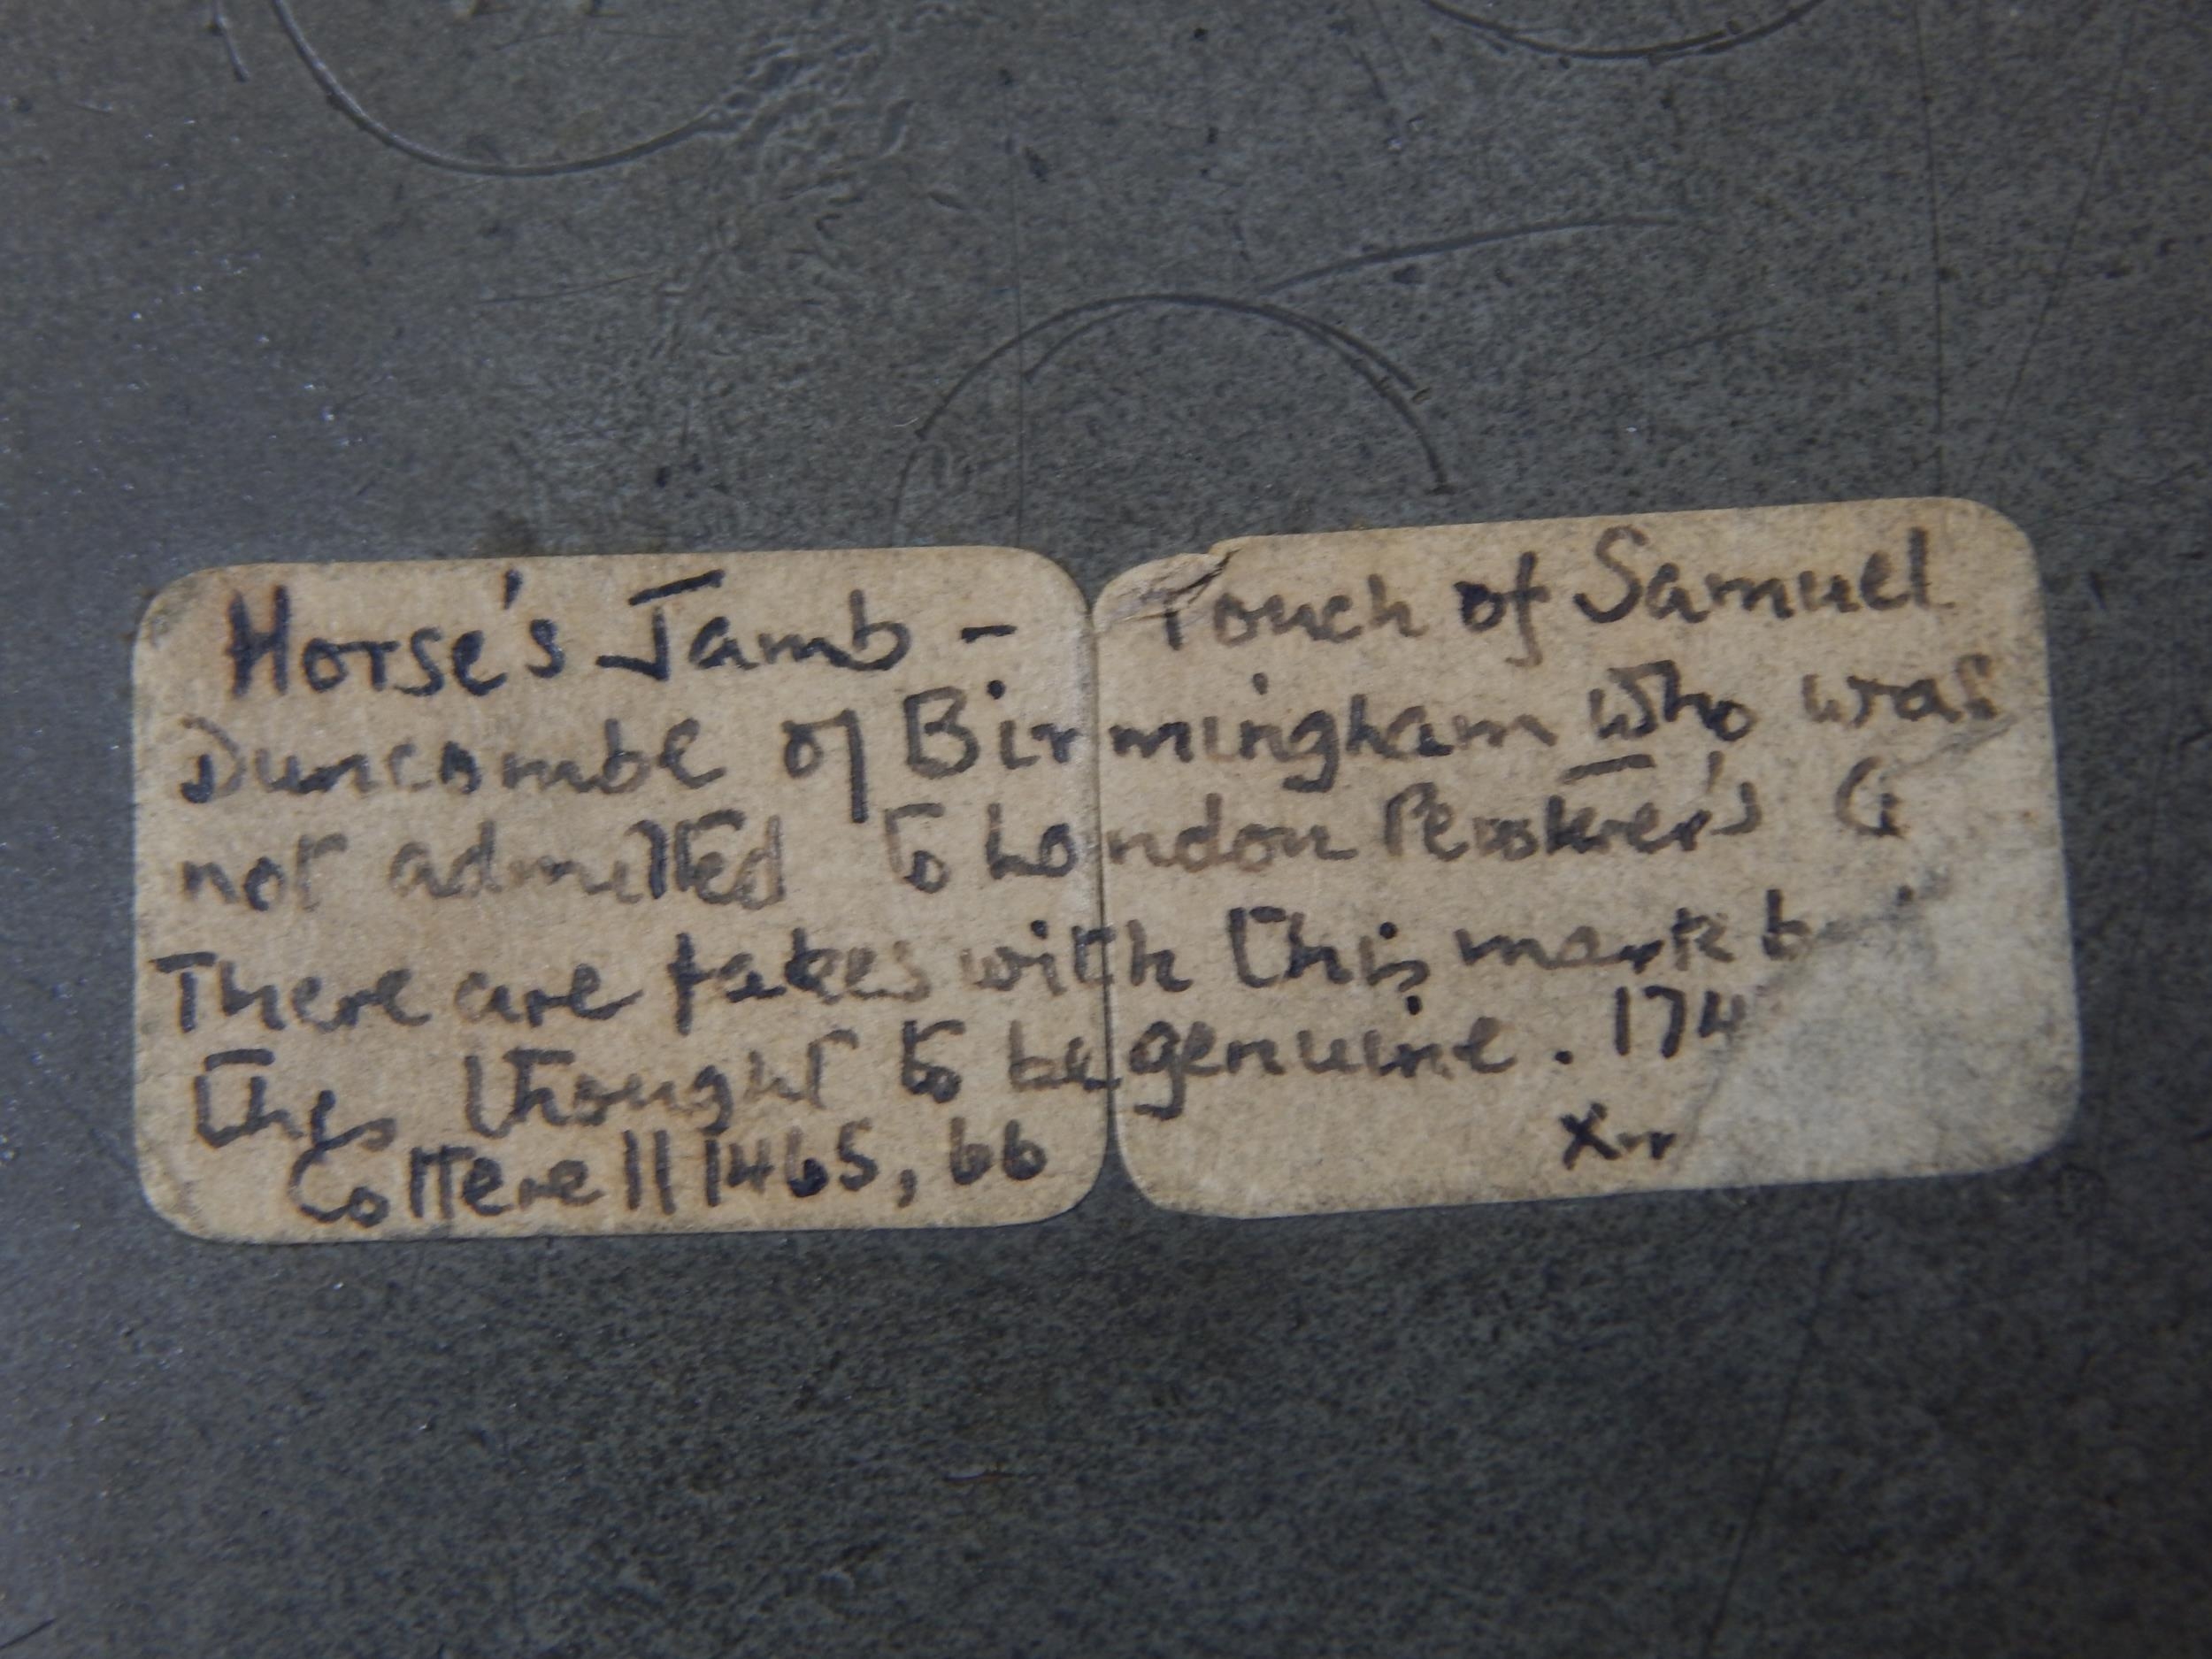 Horse's Jamb - Touch of Samuel
Duncombe of Birmingham who was
not admitted to London Pewterer's G
There are fakes with this mark b
this thought to be genuine. 174
Cotterell 1465, 66